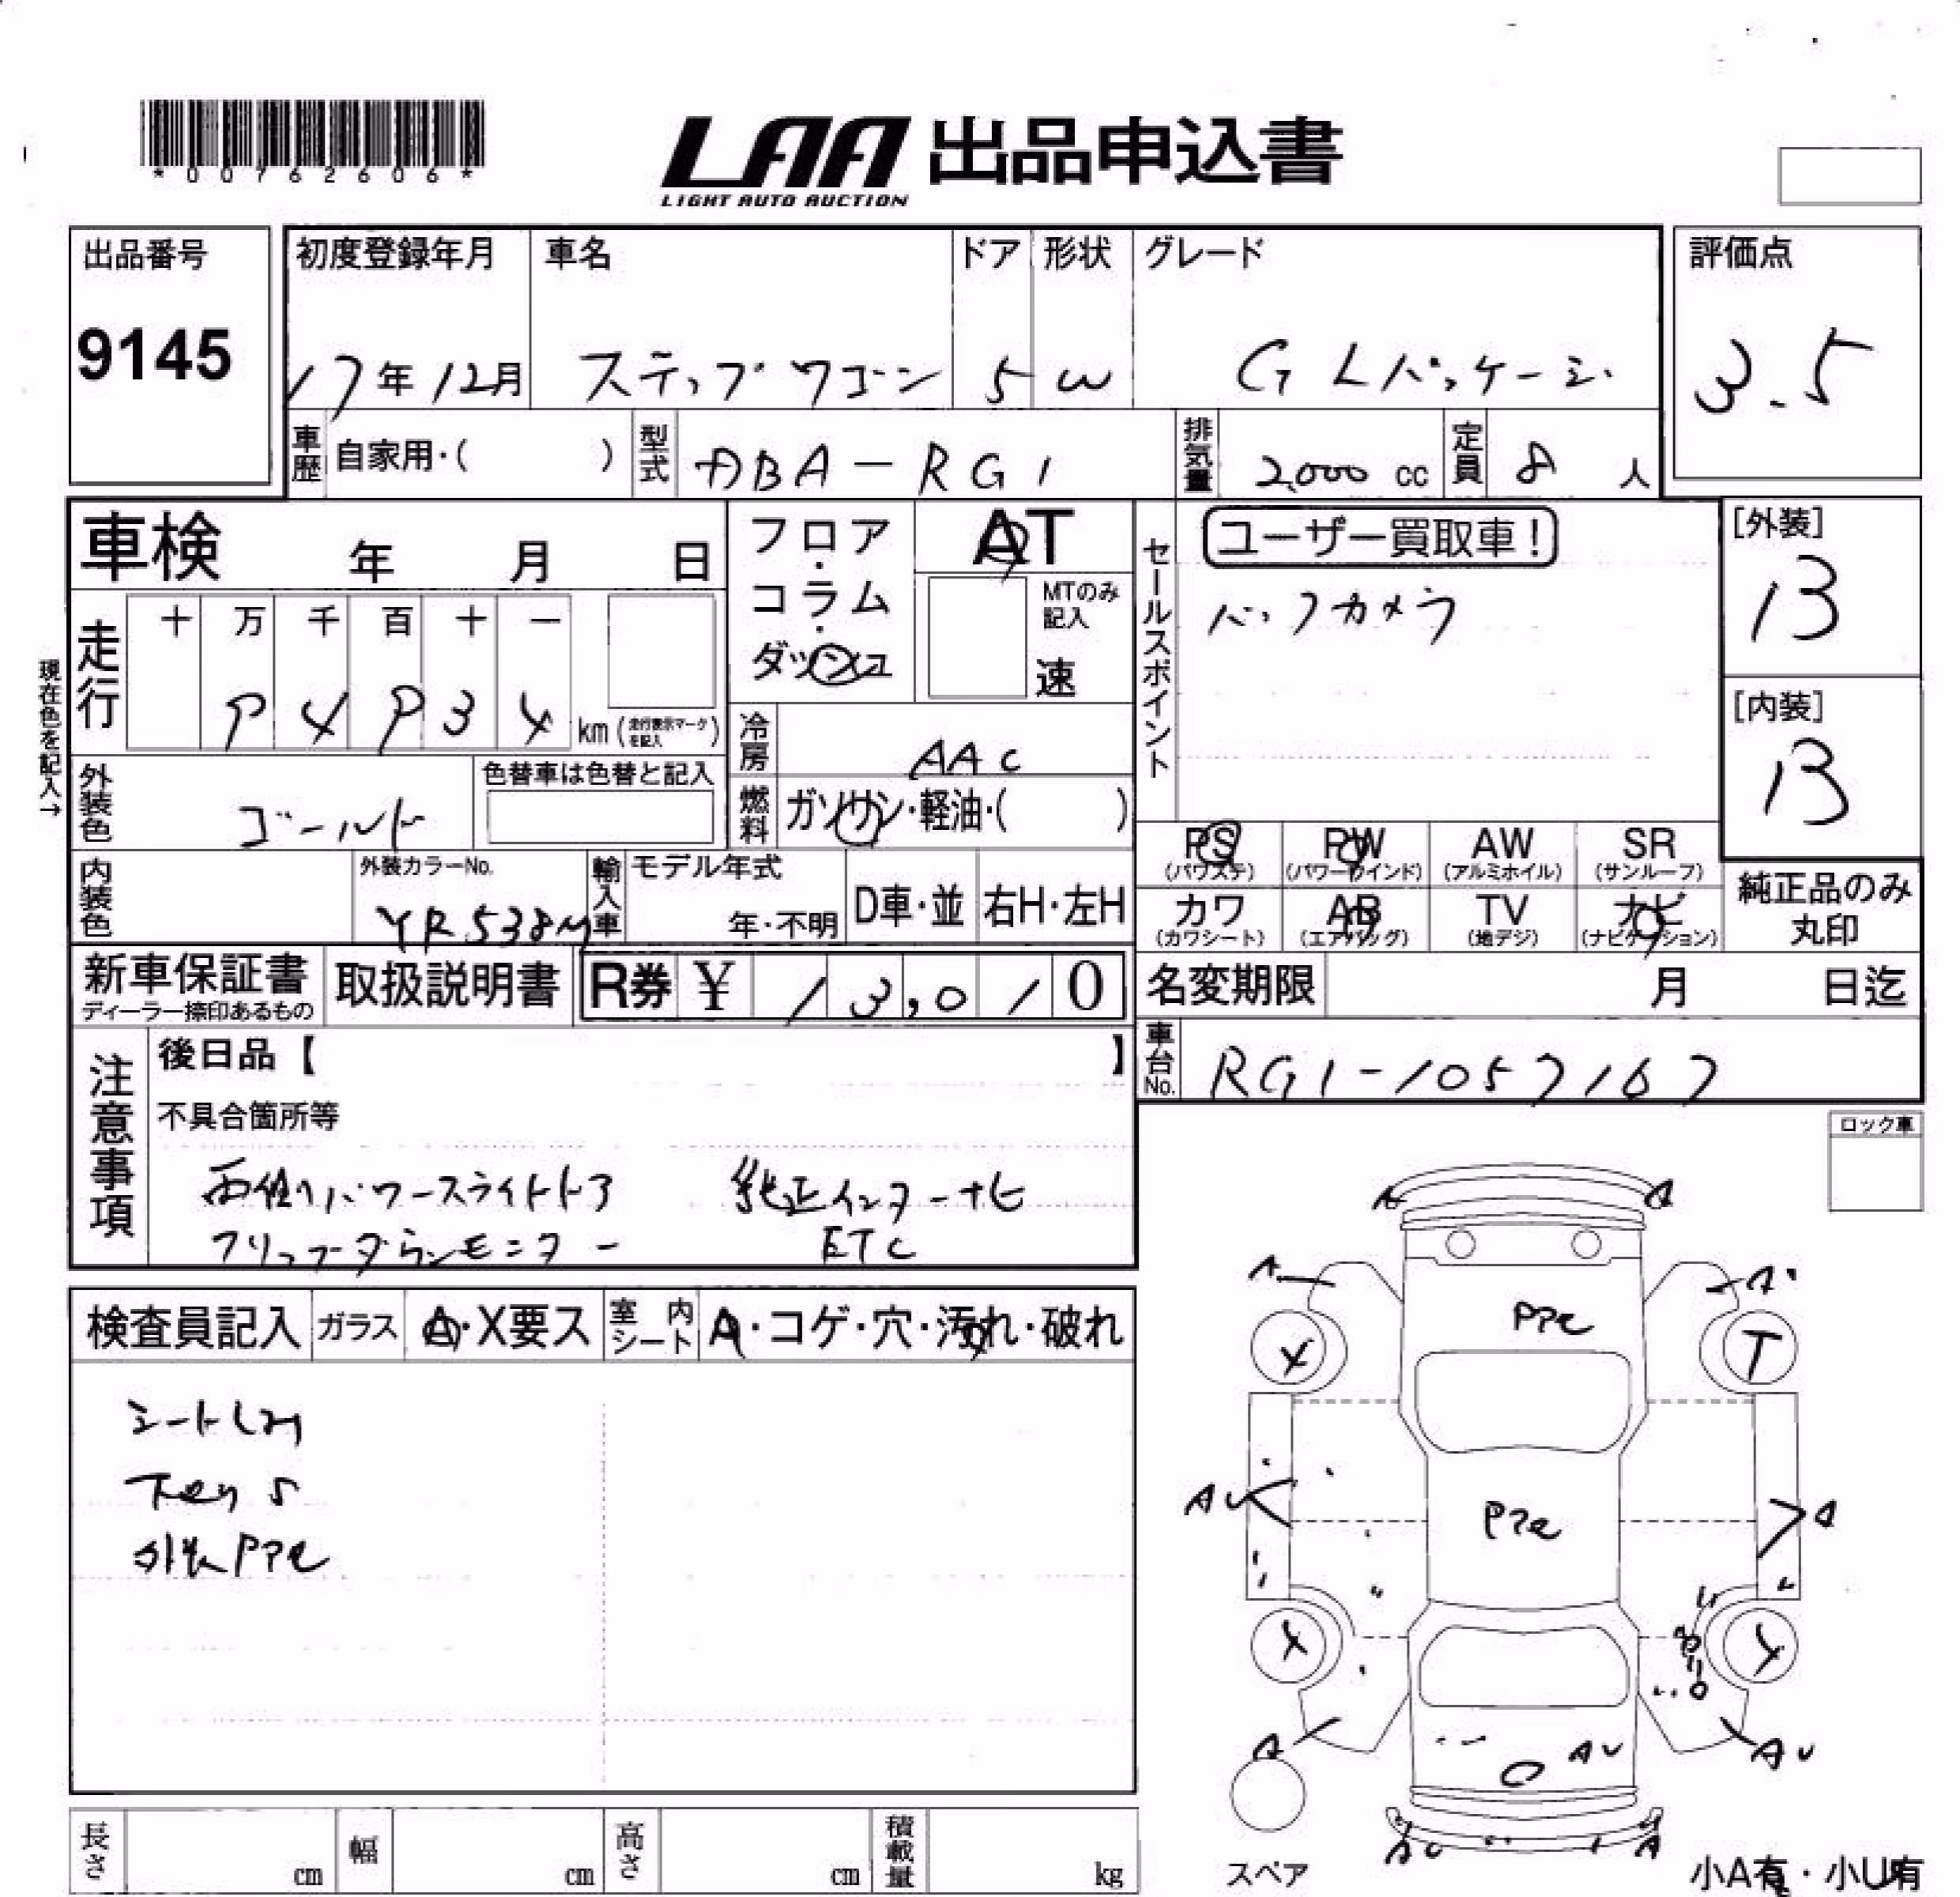 *00762606*
LAA 出品申込書
LIGHT AUTO AUCTION
出品番号
9145
初度登録年月
17年12月
車名
ステップワゴン
ドア
5
形状
W
グレード
G Lパッケージ
評価点
3.5
車歴 自家用・( )
型式 DBA-RG1
排気量 2,000 cc
定員 8 人
車検 年 月 日
フロア・コラム・ダッシュ
AT
MTのみ記入
速
セールスポイント
ユーザー買取車!
バックカメラ
[外装]
B
[内装]
B
現在色を記入→
走行
十 万 千 百 十 一
9 4 9 3 4 km (走行表示マークを記入)
冷房 AAC
外装色 ゴールド
色替車は色替と記入
燃料 ガソリン・軽油・( )
PS (パワステ)
PW (パワーウインド)
AW (アルミホイル)
SR (サンルーフ)
カワ (カワシート)
AB (エアバッグ)
TV (地デジ)
ナビ (ナビゲーション)
純正品のみ
丸印
内装色
外装カラーNo.
YR538M
輸入車
モデル年式
年・不明
D車・並
右H・左H
新車保証書
ディーラー捺印あるもの
取扱説明書
R券 ¥ 13,010
名変期限 月 日迄
車台No. RG1-1057167
注意事項
後日品【 】
不具合箇所等
両側パワースライドドア 純正インターナビ
フリップダウンモニター ETC
ロック車
検査員記入
ガラス A・X要ス
室内シート A・コゲ・穴・汚れ・破れ
シートシミ
下廻りS
外装PPc
A A
A A
PPc
X T
AU A
PPc
X X
A AU
AU
AU A
スペア
小A有・小U有
長さ cm
幅 cm
高さ cm
積載量 kg